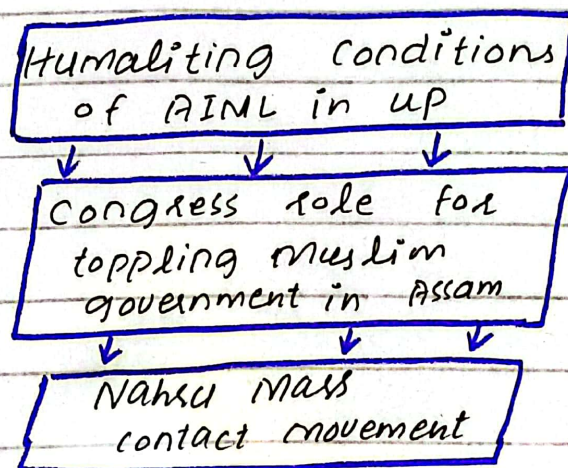 Humaliting conditions
of AIML in UP
congress role for
toppling muslim
government in Assam
Nahru Mass
contact movement